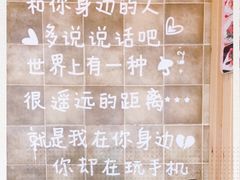 和你身边的人
多说说话吧
世界上有一种
很遥远的距离…
就是我在你身边
你却在玩手机